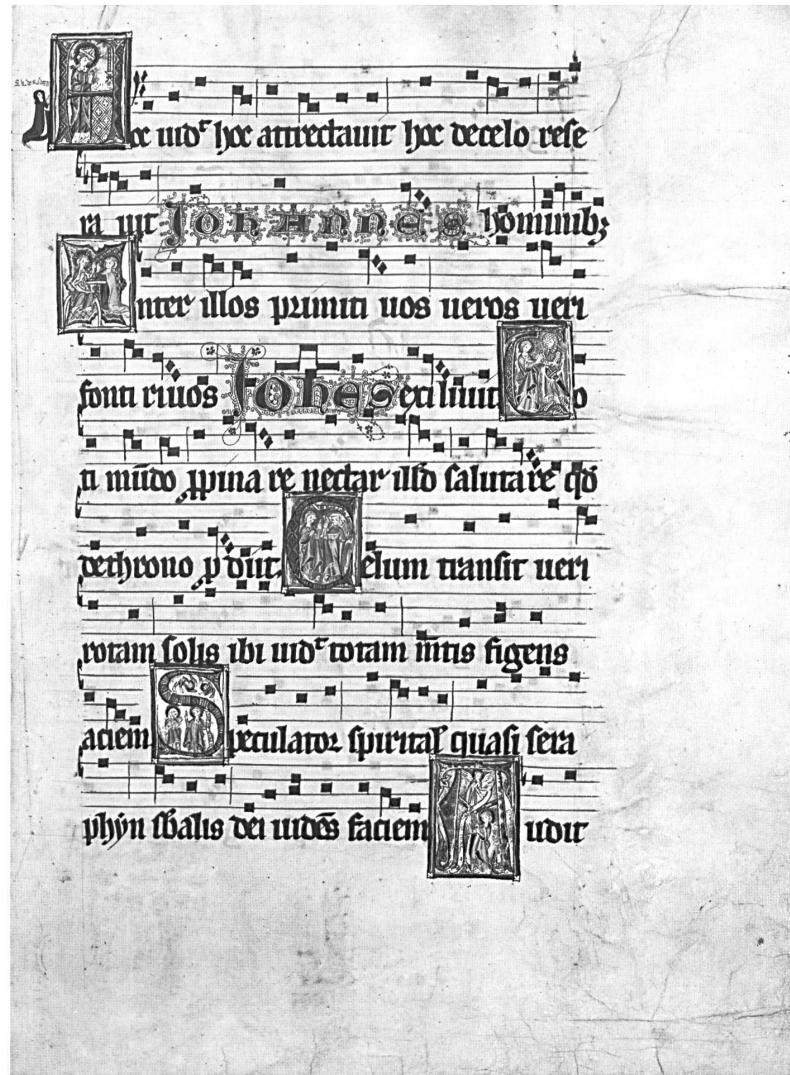 Hoc uidᵗ hoc attrectauit hoc decelo rese
ra uit Johannes hominibꝫ
Inter illos primiti uos ueros ueri
fonti riuos Johes exi liuit To
ti mūdo ꝓpina re nectar illđ salutare qđ
dethrono ꝓ diit. Celum transit ueri
rotam solis ibi uidᵗ totam m̄tis figens
aciem Speculator spiritał quasi sera
phȳn sb alis dei uidēs faciem Audit